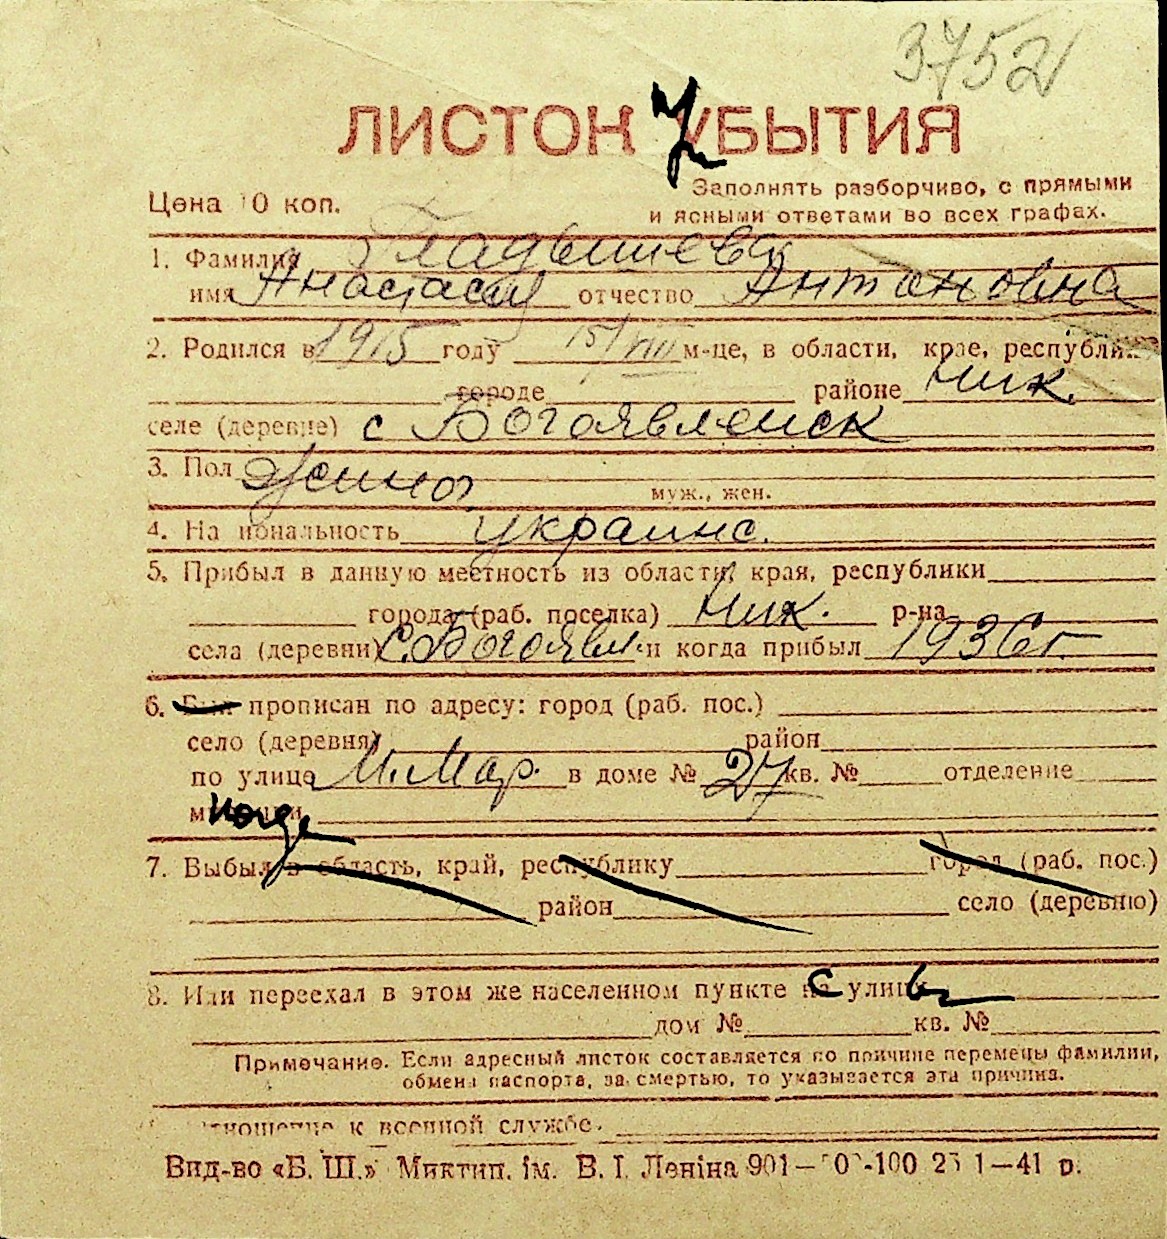 3752
ЛИСТОК УБЫТИЯ
Цена 10 коп.
Заполнять разборчиво, с прямыми
и ясными ответами во всех графах.
1. Фамилия Гладышева
имя Анастасия отчество Антоновна
2. Родился в 1915 году 15/VIII м-це, в области, крае, республике
городе районе Ник.
селе (деревне) с Богоявленск
3. Пол
муж., жен.
4. Национальность украинс.
5. Прибыл в данную местность из области, края, республики
города (раб. поселка) Ник. р-на
села (деревни) с. Богоявл. и когда прибыл 1936 г.
6. прописан по адресу: город (раб. пос.)
село (деревня) район
по улице И. Мар. в доме № 27 кв. № отделение
7. Выбыл в область, край, республику город (раб. пос.)
район село (деревню)
8. Или переехал в этом же населенном пункте с улицы
дом № кв. №
Примечание. Если адресный листок составляется по причине перемены фамилии,
обмена паспорта, за смертью, то указывается эта причина.
отношение к военной службе.
Вид-во «Б. Ш.» Миктип. ім. В. І. Леніна 901— -100 1—41 р.